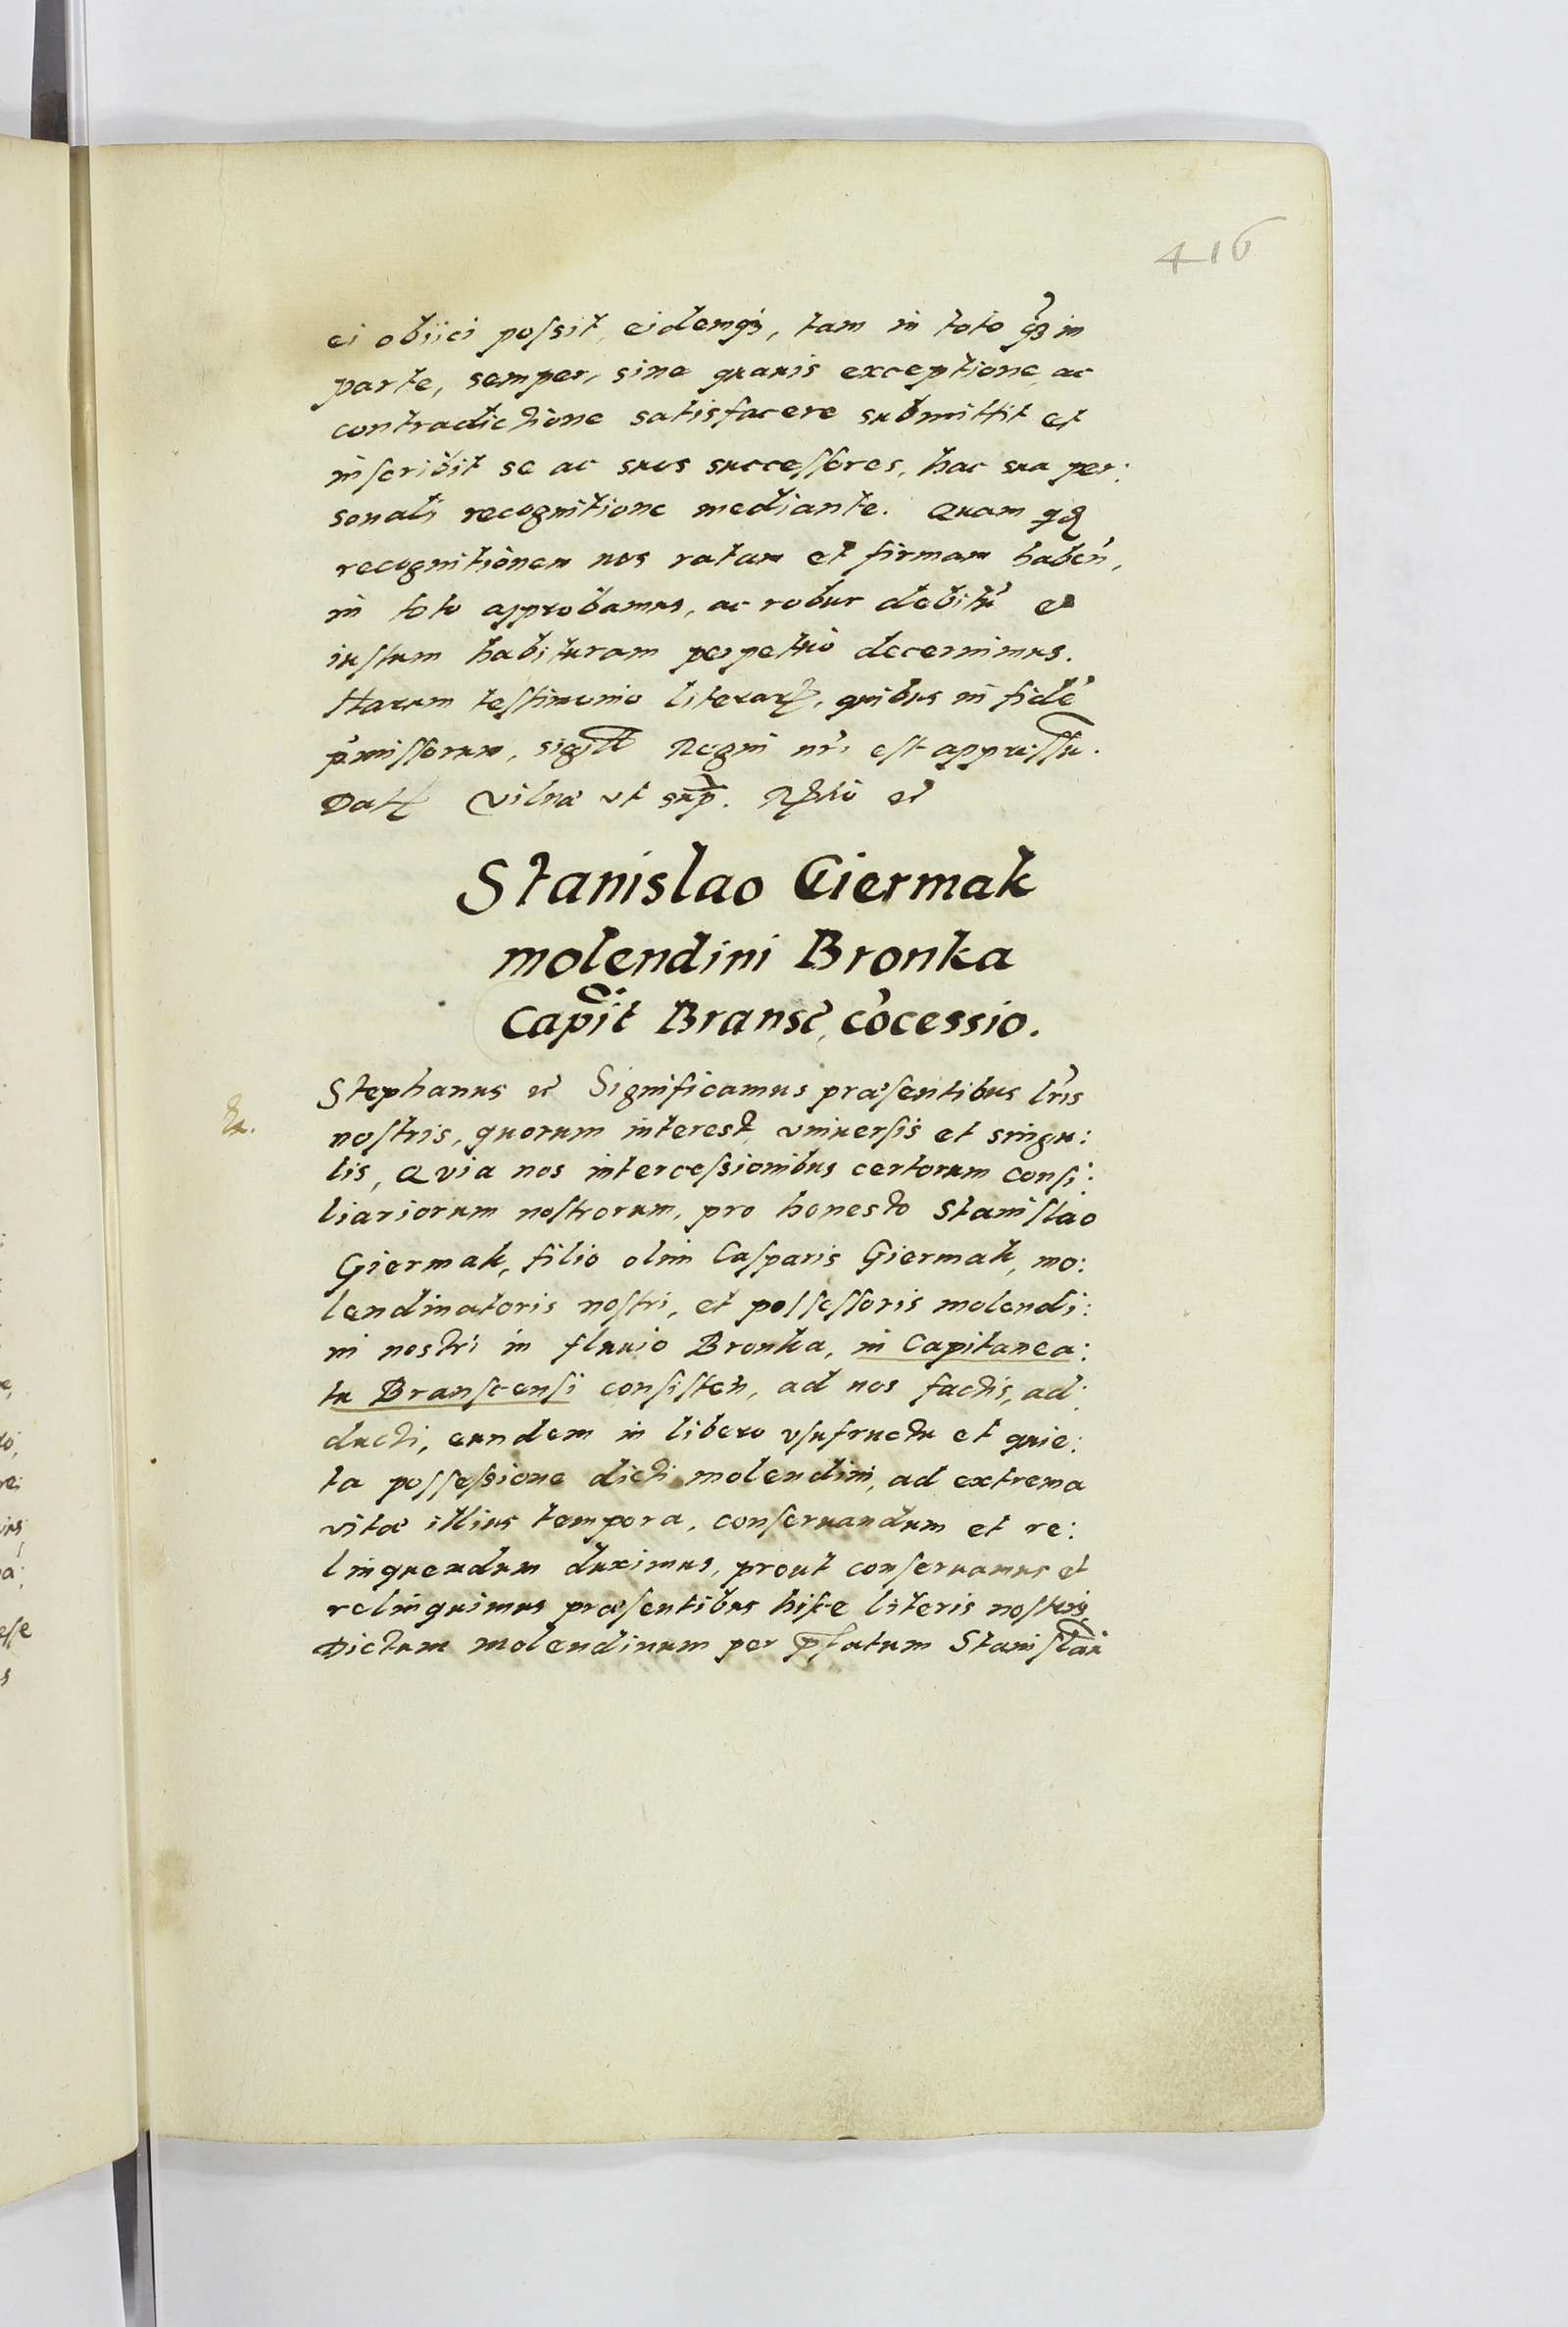 416
ei obiici possit, eidemq3, tam in toto q3 in
parte, semper, sine quauis exceptione ac
contradictione satisfacere submittit et
inscribit se ac suos successores, hac sua per:
sonali recognitione mediante. Quam qđ
recognitionem nos ratam et firmam haben̄,
in toto approbamus, ac robur debitū et
iustum habituram perpetuo decernimus.
Harum testimonio literarꝝ, quibus in fidē
p̄missorum, sigill Regni nrī est appressū.
Datꝝ Vilnæ vt sup̄. et
Stanislao Giermak
molendini Bronka
Capit Bransc̄, cōcessio.
Stephanus et Significamus præsentibus lr̄is
nostris, quorum interest vniuersis et singu:
lis, Quia nos intercessionibus certorum consi:
liariorum nostrorum, pro honesto Stanislao
Giermak, filio olim Casparis Giermak, mo:
lendinatoris nostri, et possessoris molendi:
ni nostri in fluuio Bronka, in Capitanea:
tu Branscensi consisten̄, ad nos factis, ad:
ducti, eundem in libero vsufructu et quie:
ta possessione dicti molendini, ad extrema
vitæ illius tempora, conseruandum et re:
linquendum duximus, prout conseruamus et
relinquimus præsentibus hisce literis nostris
Dictum molendinum per p̄fatum Stanislaū